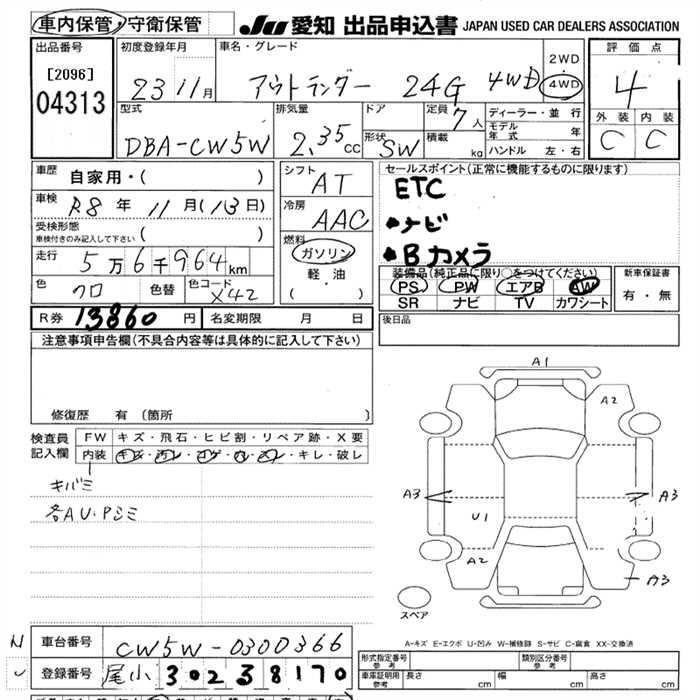 車内保管・守衛保管 JU 愛知 出品申込書 JAPAN USED CAR DEALERS ASSOCIATION
出品番号 初度登録年月 車名・グレード 2WD 評価点
[2096] 04313 23 11月 アウトランダー 24G 4WD 4WD 4
型式 排気量 ドア 定員 ディーラー・並行 外装 内装
7人 モデル年式 年
DBA-CW5W 2.35cc 形状 SW 積載 kg ハンドル 左・右 C C
車歴 自家用・( ) シフト AT セールスポイント(正常に機能するものに限ります)
ETC
車検 R8年 11月(13日) 冷房 AAC ・ナビ
受検形態 車検付きのみ記入して下さい ( ) ・Bカメラ
走行 5万6千964km 燃料 ガソリン 装備品(純正品に限り○をつけてください) 新車保証書
色 クロ 色替 色コード X42 軽・油 ( ・ ) PS PW エアB AW 有・無
SR ナビ TV カワシート
R券 13860円 名変期限 月 日 後日品
注意事項申告欄(不具合内容等は具体的に記入して下さい)
修復歴 有〔箇所 〕
検査員記入欄 FW キズ・飛石・ヒビ割・リペア跡・X要
内装 キズ・汚レ・コゲ・穴・スレ・キレ・破レ
キバミ
各AU・Pシミ
A1
A2
A3 A3
U1
A2
A3
スペア
A-キズ E-エクボ U-凹み W-補修跡 S-サビ C-腐食 XX-交換済
車台番号 CW5W-0300366
登録番号 尾小 302 38170
形式指定番号 参考 類別区分番号 参考
車庫証明用 参考 長さ cm 幅 cm 高さ cm